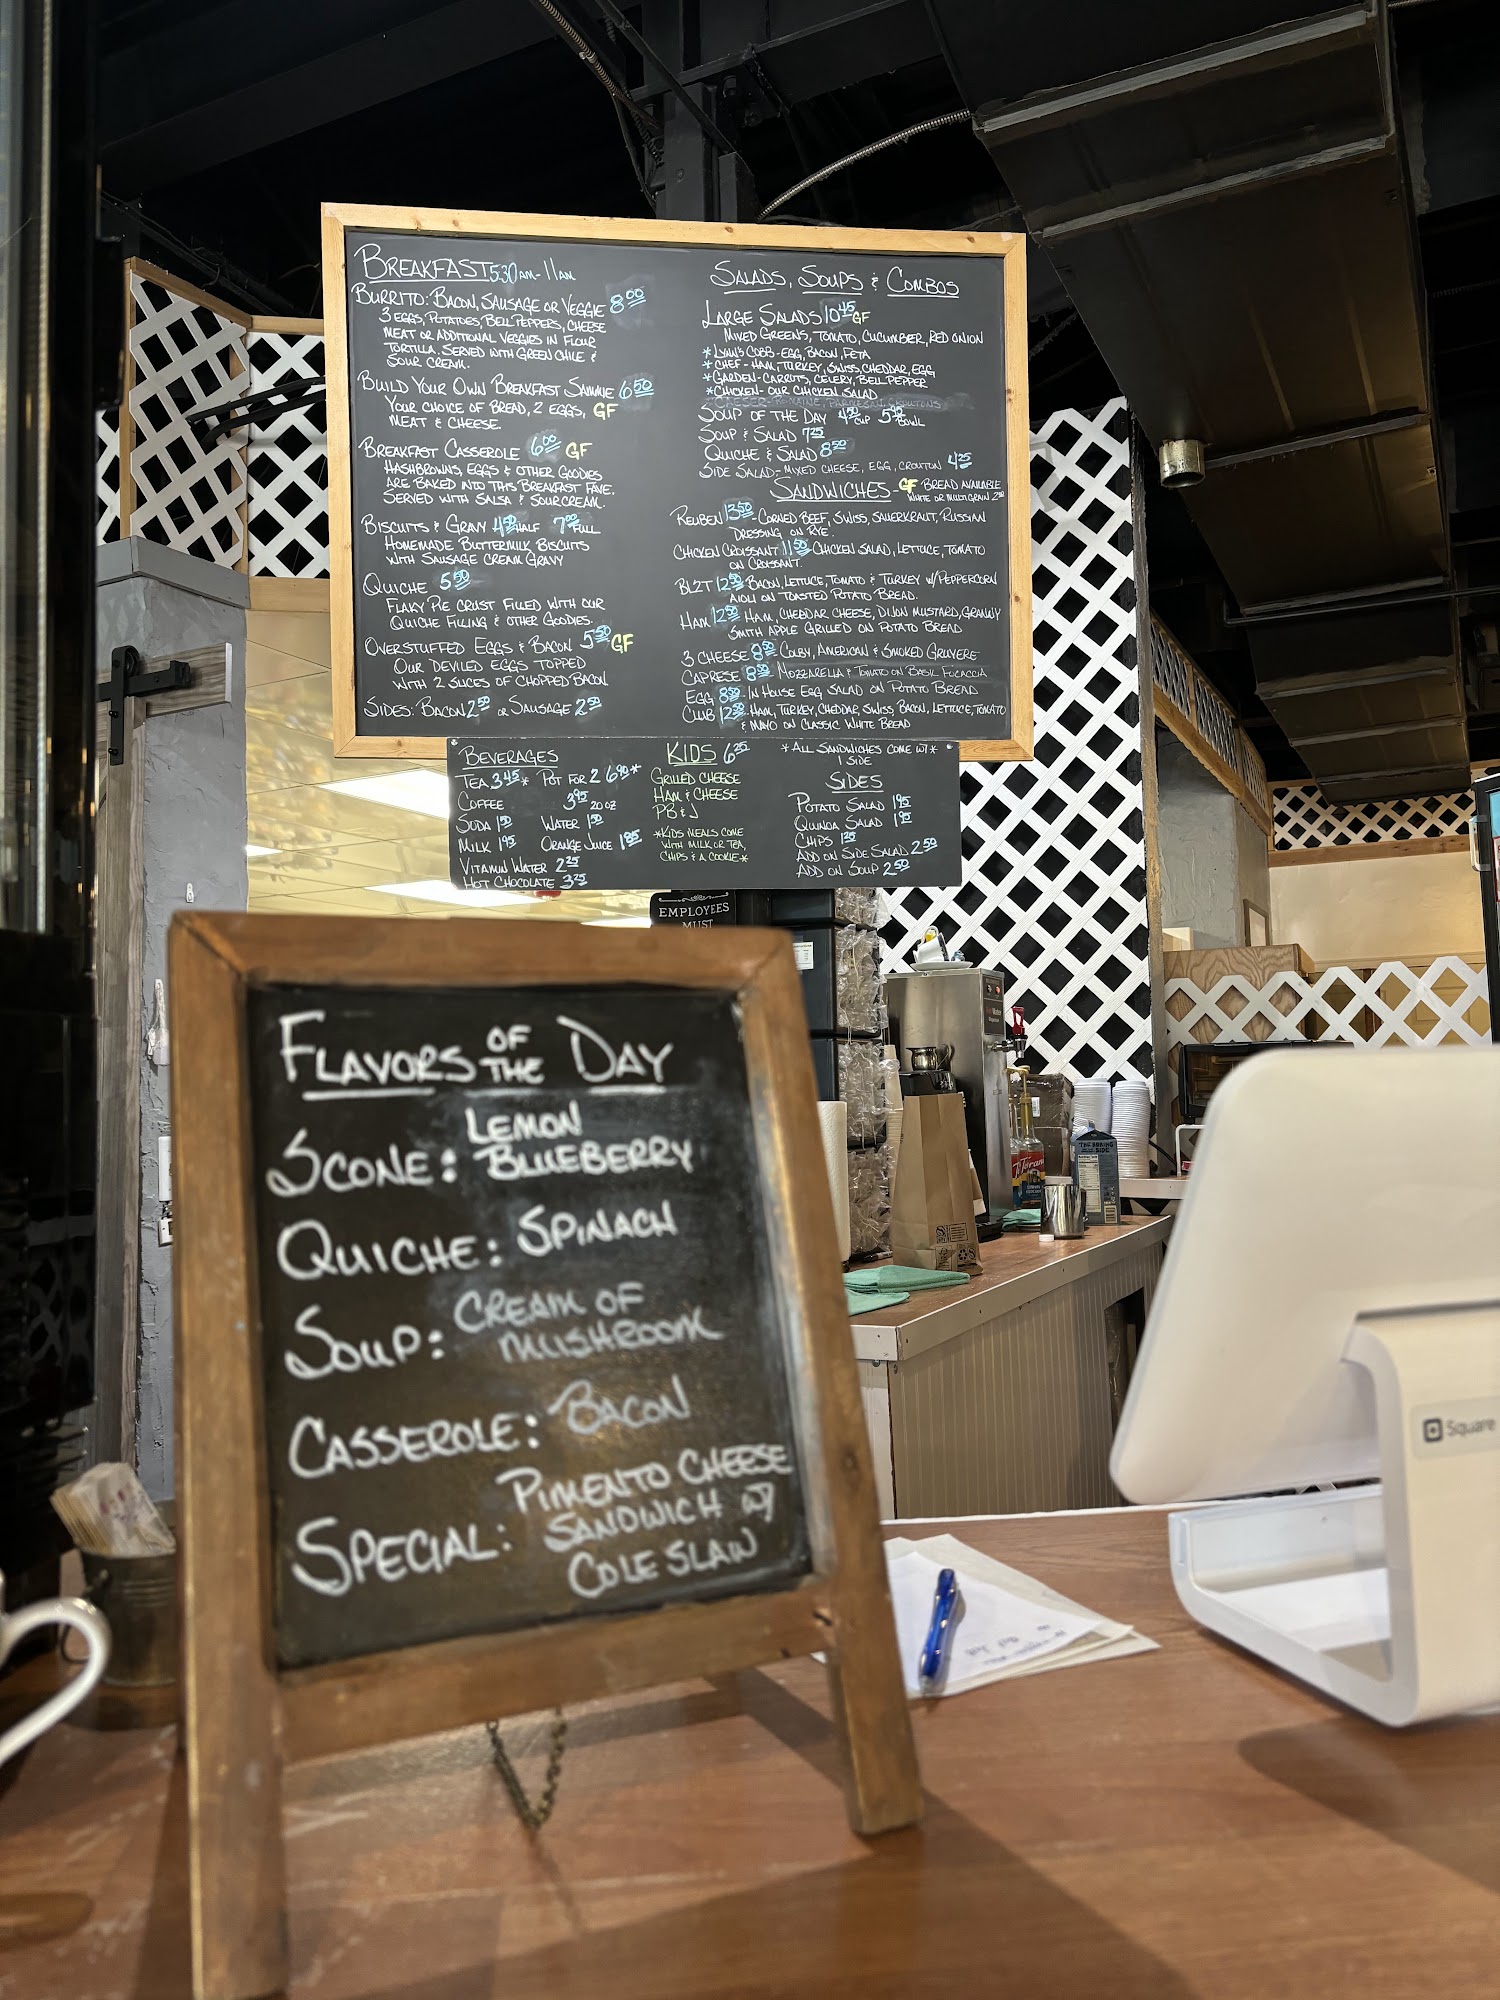 BREAKFAST 5:30AM-11AM
BURRITO: BACON, SAUSAGE OR VEGGIE 8.00
3 EGGS, POTATOES, BELL PEPPERS, CHEESE
MEAT OR ADDITIONAL VEGGIES IN FLOUR
TORTILLA. SERVED WITH GREEN CHILE &
SOUR CREAM.
BUILD YOUR OWN BREAKFAST SAMMIE 6.50
YOUR CHOICE OF BREAD, 2 EGGS, GF
MEAT & CHEESE.
BREAKFAST CASSEROLE 6.00 GF
HASHBROWNS, EGGS & OTHER GOODIES
ARE BAKED INTO THIS BREAKFAST FAVE.
SERVED WITH SALSA & SOUR CREAM.
BISCUITS & GRAVY 4.50 HALF 7.00 FULL
HOMEMADE BUTTERMILK BISCUITS
WITH SAUSAGE CREAM GRAVY
QUICHE 5.50
FLAKY PIE CRUST FILLED WITH OUR
QUICHE FILLING & OTHER GOODIES.
OVERSTUFFED EGGS & BACON 5.50 GF
OUR DEVILED EGGS TOPPED
WITH 2 SLICES OF CHOPPED BACON
SIDES: BACON 2.50 OR SAUSAGE 2.50
SALADS, SOUPS & COMBOS
LARGE SALADS 10.45 GF
MIXED GREENS, TOMATO, CUCUMBER, RED ONION
*LYNN'S COBB - EGG, BACON, FETA
*CHEF - HAM, TURKEY, SWISS, CHEDDAR, EGG
*GARDEN - CARROTS, CELERY, BELL PEPPER
*CHICKEN - OUR CHICKEN SALAD
SOUP OF THE DAY 4.50 CUP 5.90 BOWL
SOUP & SALAD 7.25
QUICHE & SALAD 8.50
SIDE SALAD - MIXED CHEESE, EGG, CROUTON 4.25
SANDWICHES - GF BREAD AVAILABLE
WHITE OR MULTIGRAIN
REUBEN 13.50 - CORNED BEEF, SWISS, SAUERKRAUT, RUSSIAN
DRESSING ON RYE.
CHICKEN CROISSANT 11.50 CHICKEN SALAD, LETTUCE, TOMATO
ON CROISSANT.
BL2T 12.50 BACON, LETTUCE, TOMATO & TURKEY W/PEPPERCORN
AIOLI ON TOASTED POTATO BREAD.
HAM 12.50 HAM, CHEDDAR CHEESE, DIJON MUSTARD, GRANNY
SMITH APPLE GRILLED ON POTATO BREAD
3 CHEESE 8.50 COLBY, AMERICAN & SMOKED GRUYERE
CAPRESE 8.50 MOZZARELLA & TOMATO ON BASIL FOCACCIA
EGG 8.50 - IN HOUSE EGG SALAD ON POTATO BREAD
CLUB 12.50 - HAM, TURKEY, CHEDDAR, SWISS, BACON, LETTUCE, TOMATO
& MAYO ON CLASSIC WHITE BREAD
BEVERAGES
TEA 3.45* POT FOR 2 6.90*
COFFEE 3.95 20 OZ
SODA 1.50 WATER 1.50
MILK 1.95 ORANGE JUICE 1.85
VITAMIN WATER 2.25
HOT CHOCOLATE 3.25
KIDS 6.25
GRILLED CHEESE
HAM & CHEESE
PB & J
*KIDS MEALS COME
WITH MILK OR TEA,
CHIPS & A COOKIE*
*ALL SANDWICHES COME W/*
1 SIDE
SIDES
POTATO SALAD 1.95
QUINOA SALAD 1.95
CHIPS 1.25
ADD ON SIDE SALAD 2.50
ADD ON SOUP 2.50
EMPLOYEES
MUST
FLAVORS OF THE DAY
SCONE: LEMON
BLUEBERRY
QUICHE: SPINACH
SOUP: CREAM OF
MUSHROOM
CASSEROLE: BACON
SPECIAL: PIMENTO CHEESE
SANDWICH W/
COLE SLAW
Torani
Square